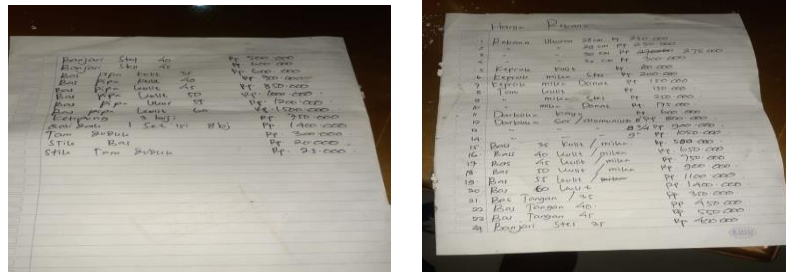 Banjari Stel 40 Rp 500.000
Banjari Stel 45 Rp 600.000
Bas Pipa Kulit 35 Rp 600.000
Bas Pipa Kulit 40 Rp
Bas Pipa Kulit 45 Rp 850.000
Bas Pipa Kulit 50 Rp
Bas Pipa Ukur 55 Rp 1200.000
Bas Pipa Kulit 60 Rp 1.500.000
Ketipung 3 biji Rp 750.000
1 Set isi 8 bj Rp 1.400.000
Tam Rp 300.000
Stik Bas Rp 20.000
Stik Tam Rp. 25.000
Harga Rebana
1 Rebana Ukuran 28 cm Rp 250.000
2 29 cm Rp 250.000
3 30 cm Rp 275.000
4 cm Rp 300.000
5 Keprak Kulit Rp
6 Keprak mika Stel Rp 200.000
7 Keprak mika Donat Rp 150.000
8 Tam Kulit Rp 150.000
9 mika Stel Rp 250.000
10 mika Donat Rp 175.000
11 Darbuka Rp 600.000
12 Darbuka Cor / Alumunium Rp 800.000
13 Rp 900.000
14 Rp 1050.000
15 Bass 35 Kulit / mika Rp 500.000
16 Bass 40 Kulit / mika Rp 650.000
17 Bas 45 Kulit / mika Rp 750.000
18 Bas 50 Kulit / mika Rp 900.000
19 Bas 55 Kulit / Rp 1100.000
20 Bas 60 Kulit Rp 1.400.000
21 Bas Tangan / 35 Rp 350.000
22 Bas Tangan 40 Rp 450.000
23 Bas Tangan 45 Rp 550.000
24 Banjari Stel 35 Rp 400.000